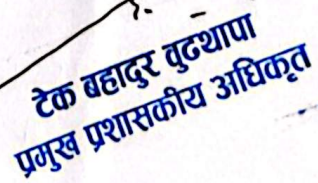 टेक बहादुर वुढथापा
प्रमुख प्रशासकीय अधिकृत